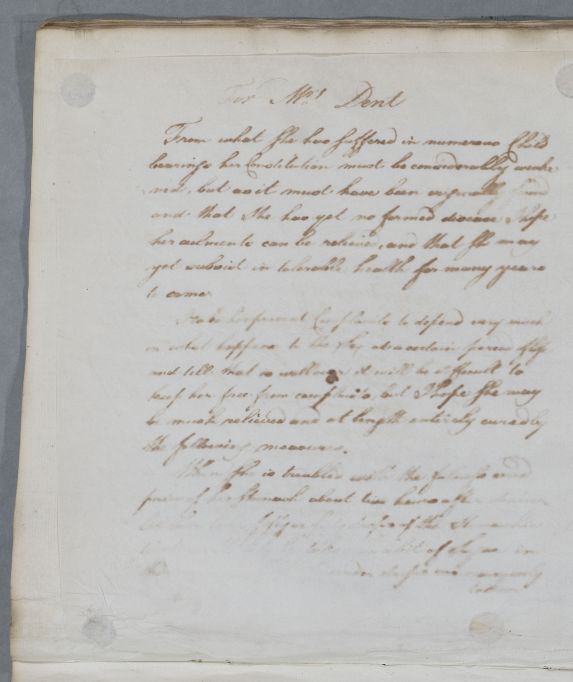 For Mrs Dent
From what She has suffered in numerous Child
bearings her Constitution must be considerably weake
ned, but as it must have been originally
and that She has yet no formed disease I hope
her ailments can be relieved, and that She may
yet subsist in tolerable health for many years
to come
I take her present Complaints to depend very much
on what happens to the Sex at a certain period of life
and till that is well over it will be difficult to
keep her free from complaints, but I hope She may
be much relieved and at length entirely cured by
the following measures.
When She is troubled with the fulness and
pain of her Stomach about two hours after dinner
of the
take a bit of Sugar in
commonly
taken